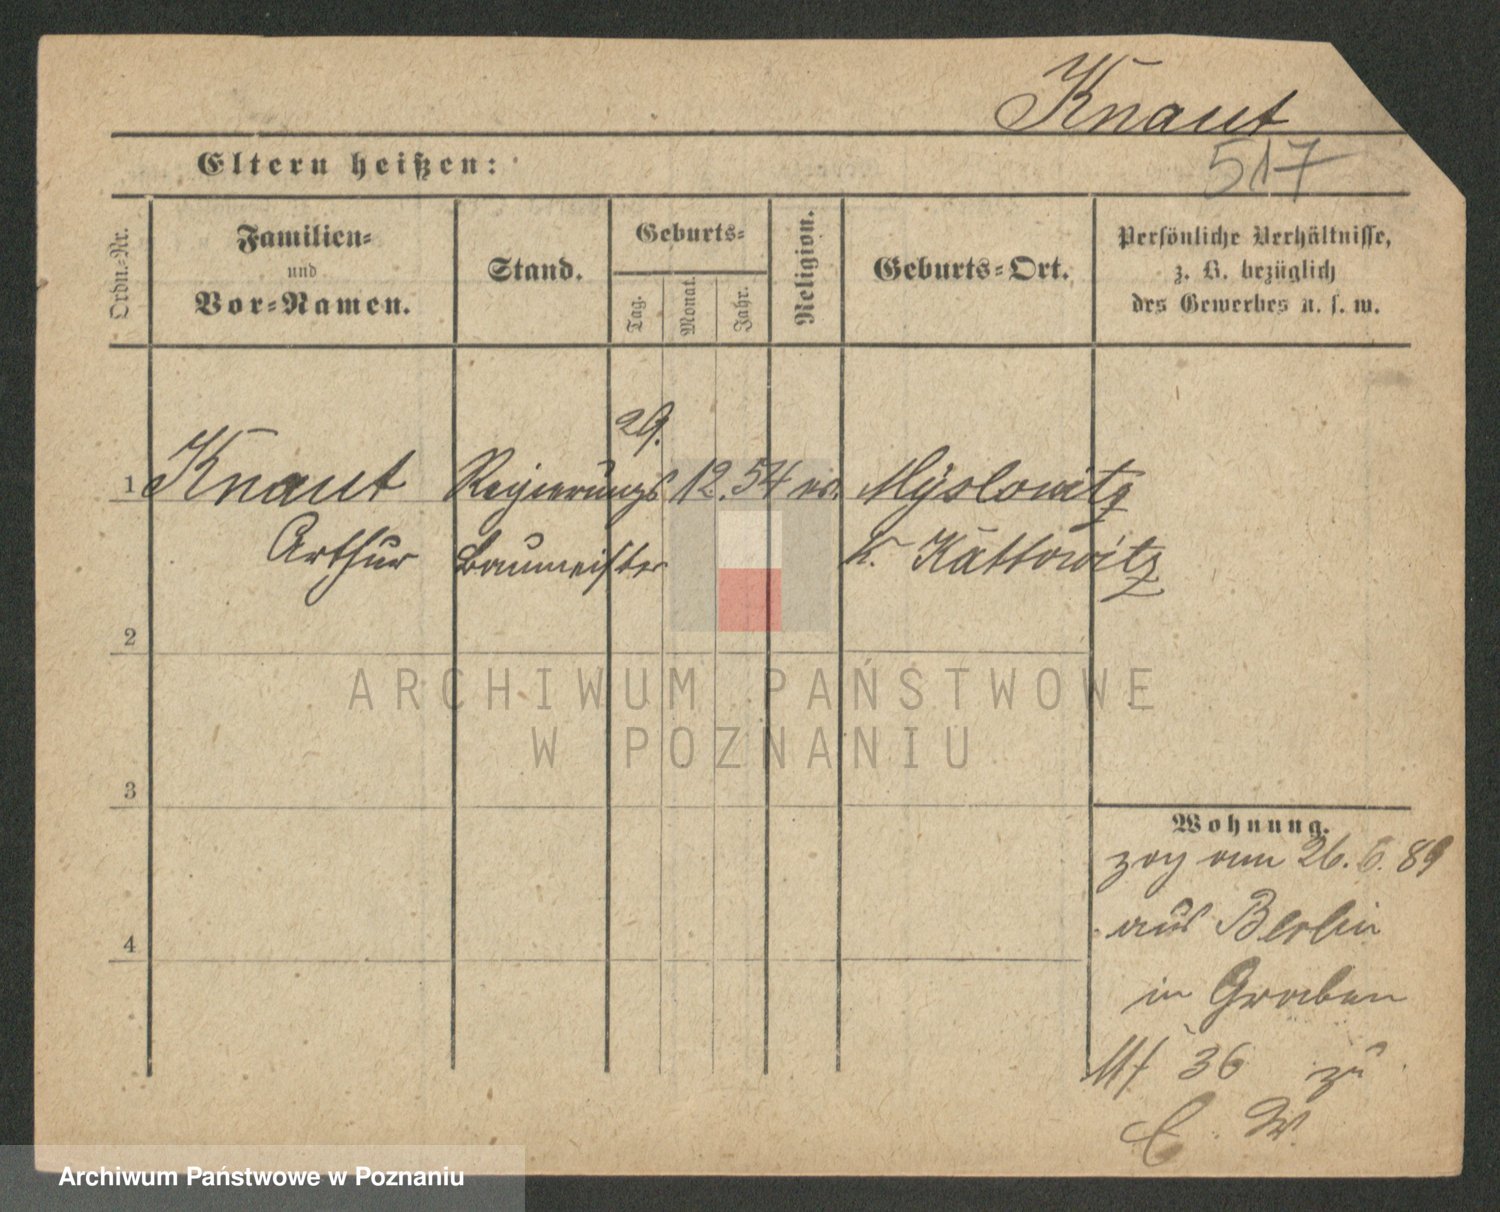 Knaut
517
Eltern heißen:
Ordn.-Nr.
Familien-
und
Vor-Namen.
Stand.
Geburts-
Tag.
Monat.
Jahr.
Religion.
Geburts-Ort.
Persönliche Verhältnisse,
z. B. bezüglich
des Gewerbes u. s. w.
29.
1 Knaut Regierungs 12. 54 ev. Myslowitz
Arthur Baumeister K. Kattowitz
2
3
4
Wohnung.
zog am 26. 6. 89
aus Berlin
in Graben
36 zu
C. W.
ARCHIWUM PAŃSTWOWE
W POZNANIU
Archiwum Państwowe w Poznaniu